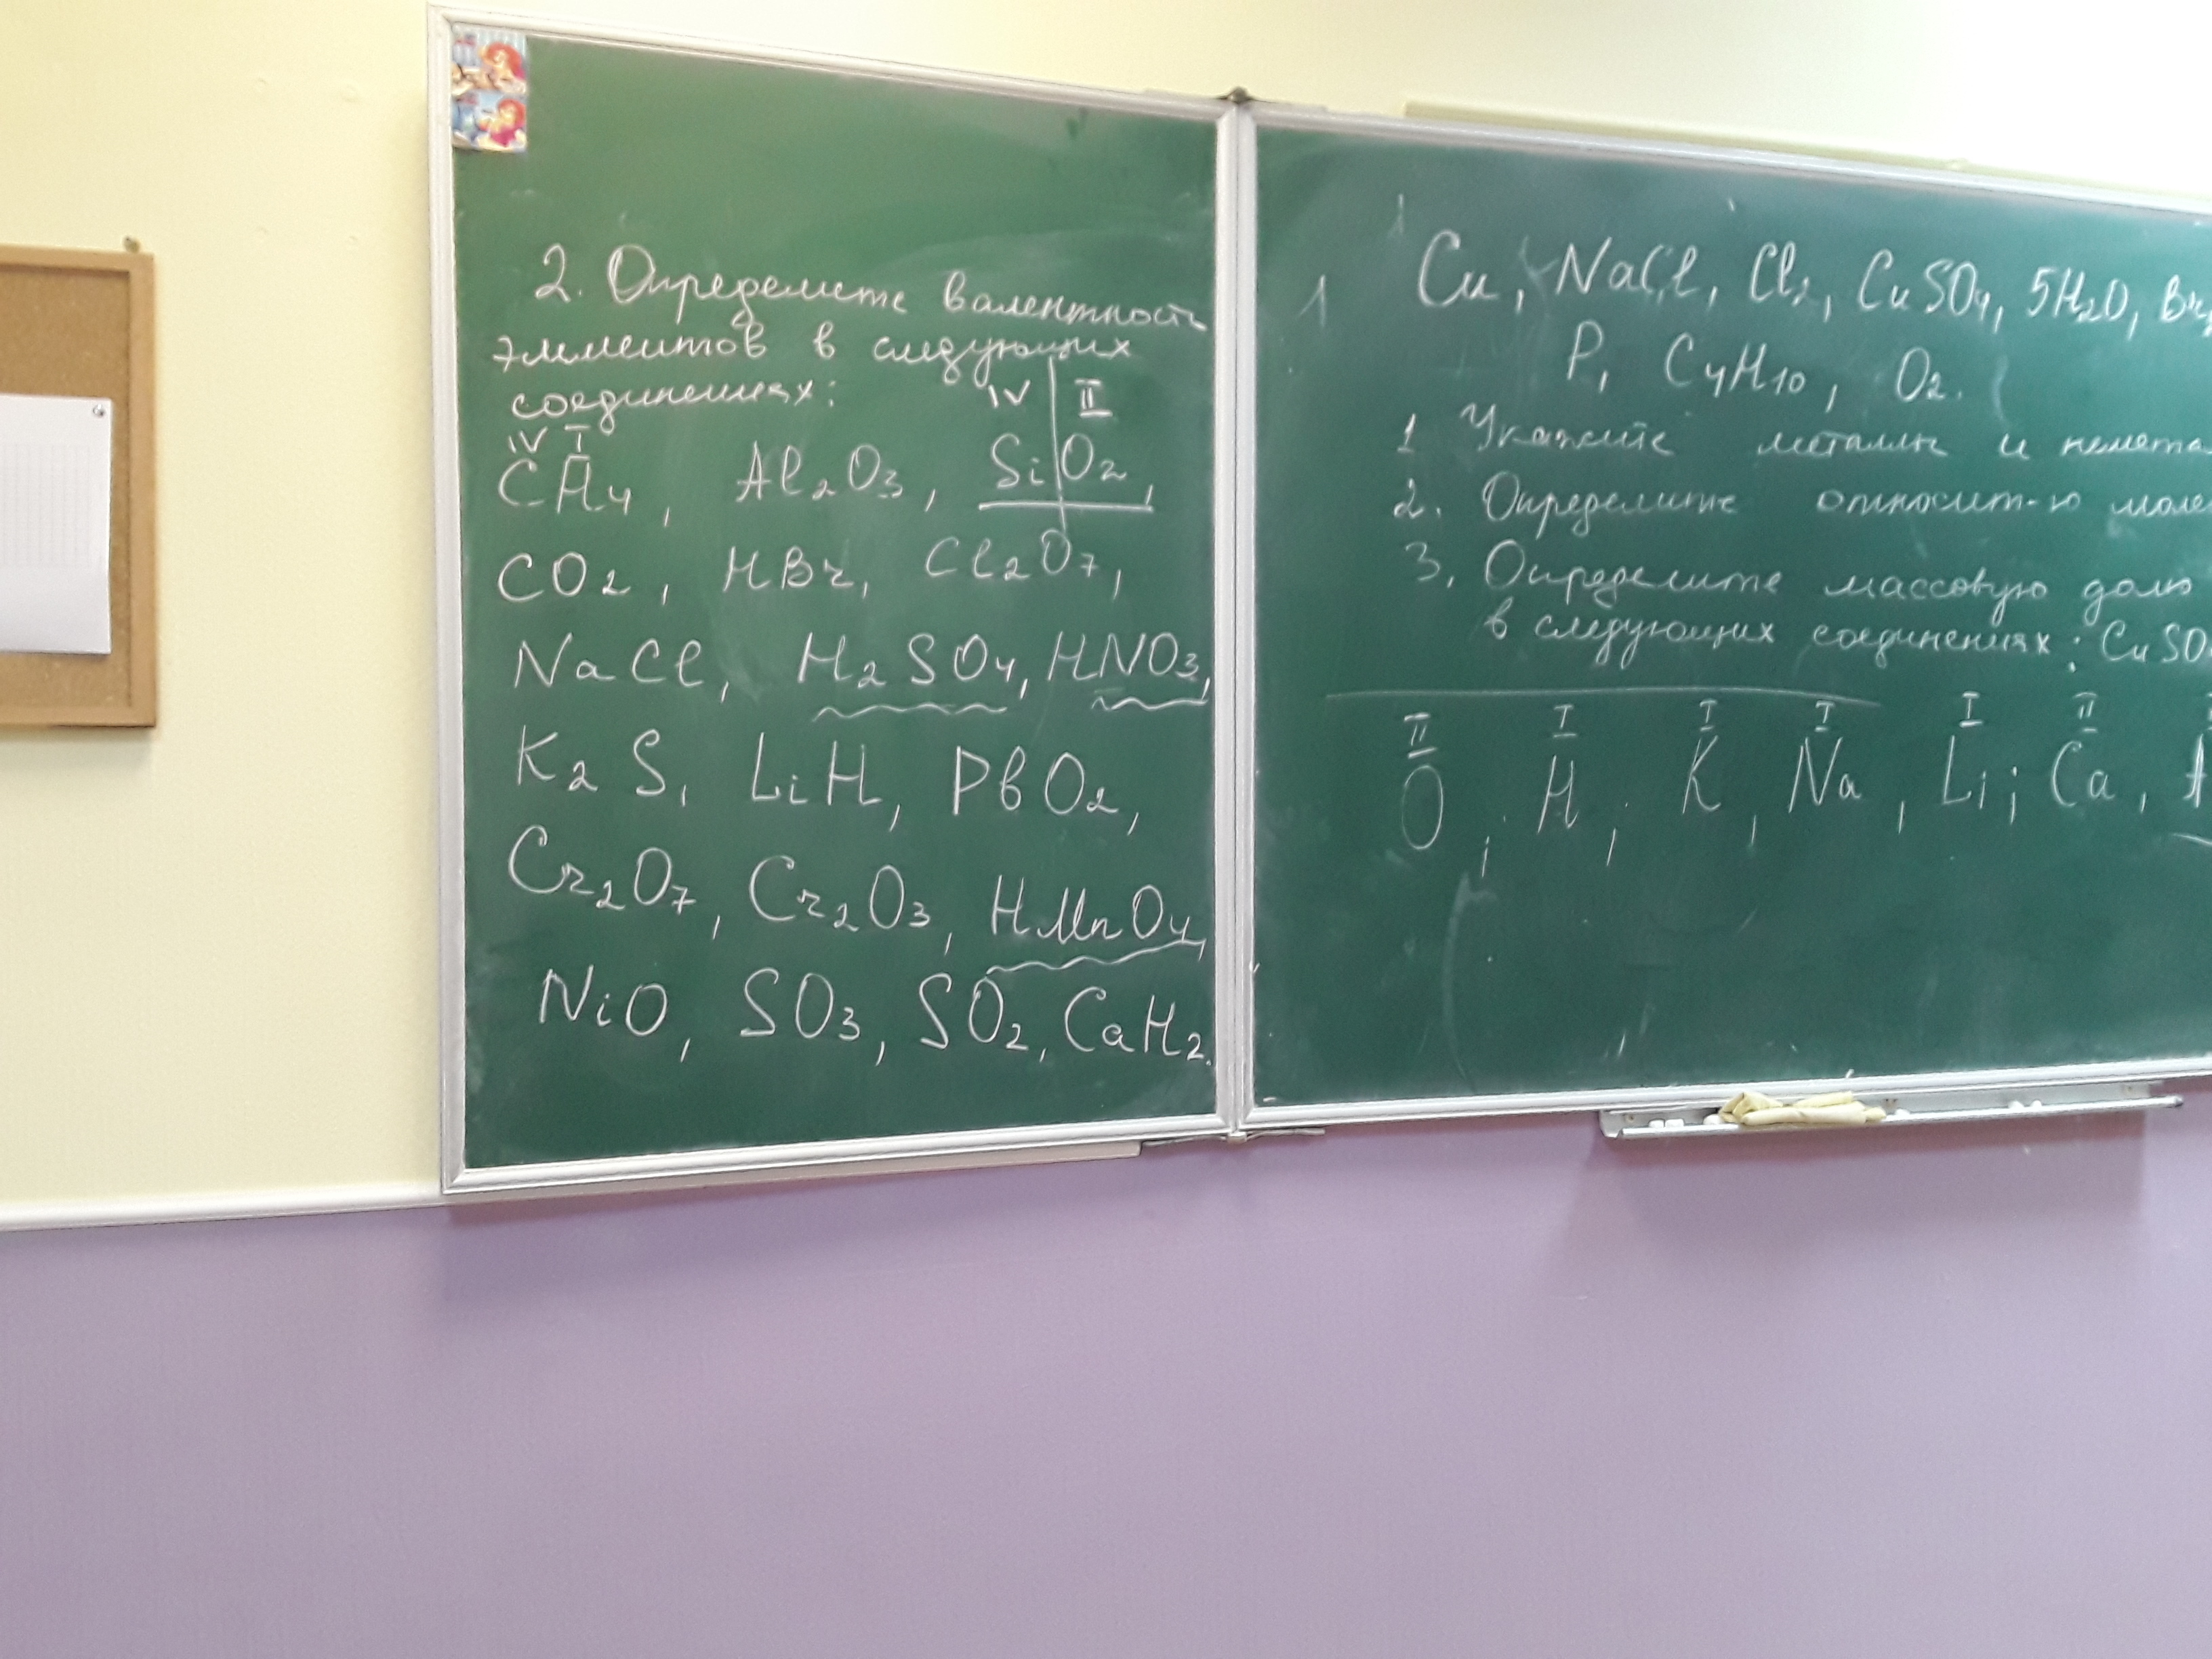 2. Определите валентность
элементов в следующих
соединениях:
IV II
IV I
CH4, Al2O3, SiO2,
CO2, HBr, Cl2O7,
NaCl, H2SO4, HNO3,
K2S, LiH, PbO2,
Cr2O7, Cr2O3, HMnO4,
NiO, SO3, SO2, CaH2.
1 Cu, NaCl, Cl2, CuSO4, 5H2O,
P, C4H10, O2.
1 Укажите металлы и немета
2. Определите относит-ю моле
3. Определите массовую долю
в следующих соединениях: CuSO
II I I I I II
O, H, K, Na, Li; Ca, A